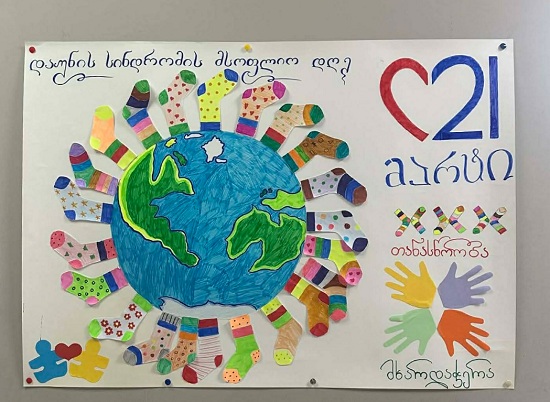 დაუნის სინდრომის მსოფლიო დღე
21
მარტი
თანასწორობა
მხარდაჭერა